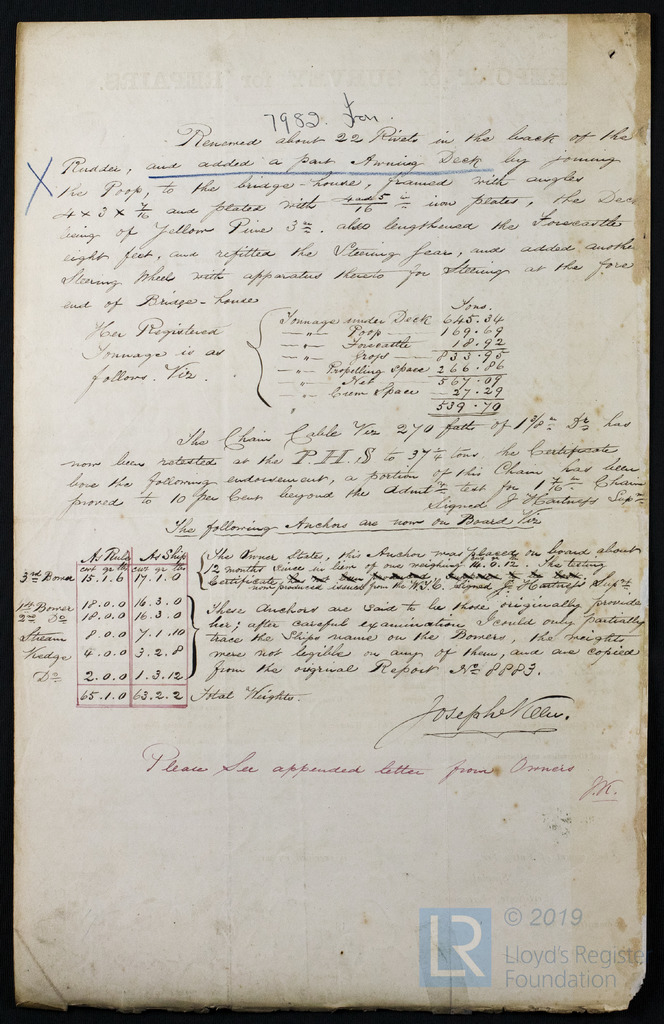 7982 Iron.
Renewed about 22 Rivets in the back of the
Rudder, and added a part Awning Deck by joining
the Poop, to the bridge-house, framed with angles
4 x 3 x 7/16 and plated with 4 and 5/16 in iron plates, the Deck
being of Yellow Pine 3 in. also lengthened the Forecastle
eight feet, and refitted the Steering Gear, and added another
Steering Wheel with apparatus thereto for Steering at the fore
end of Bridge-house
Her Registered
Tonnage is as
follows. Viz.
Tons.
Tonnage under Deck 645.34
-"- Poop 169.69
-"- Forecastle 18.92
-"- Gross 833.95
-"- Propelling Space 266.86
-"- Net 567.09
-"- Crew Space 27.29
" 539.70
The Chain Cable Viz 270 faths of 1 3/8 in Do. has
now been retested at the P.H., S to 37 1/4 tons. the Certificate
bore the following endorsement, a portion of this Chain has been
proved to 10 per Cent beyond the Admlty test for 1 6/16 in Chain
Signed J Hartness Supt
The following Anchors are now on Board Viz
As Rule As Ship
cwt qr lb cwt qr lb
3rd Bower 15.1.6 17.1.0
The Owner States, this Anchor was placed on board about
12 months since in lieu of one weighing 14.0.12. The testing
Certificate
now produced issued from the W.T.C. Signed J. Hartness Supt.
1st Bower 18.0.0 16.3.0
2nd Do 18.0.0 16.3.0
Stream 8.0.0 7.1.10
Kedge 4.0.0 3.2.8
Do 2.0.0 1.3.12
These Anchors are said to be those originally provided
her; after careful examination I could only partially
trace the Ships name on the Bowers, the weights
were not legible on any of them, and are copied
from the original Report No 8883.
65.1.0 63.2.2 Total Weights.
Joseph
Please See appended letter from Owners
J.K.
LR
© 2019
Lloyd's Register
Foundation